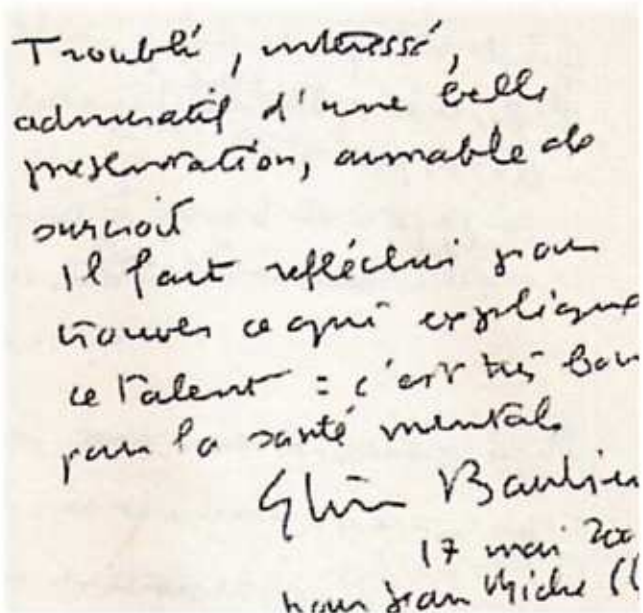 Troublé, intéressé,
admiratif d'une belle
présentation, aimable de
surcroît
Il faut réfléchir pour
trouver ce qui explique
ce talent : c'est très bon
pour la santé mentale
17 mai 200
pour Jean Michel